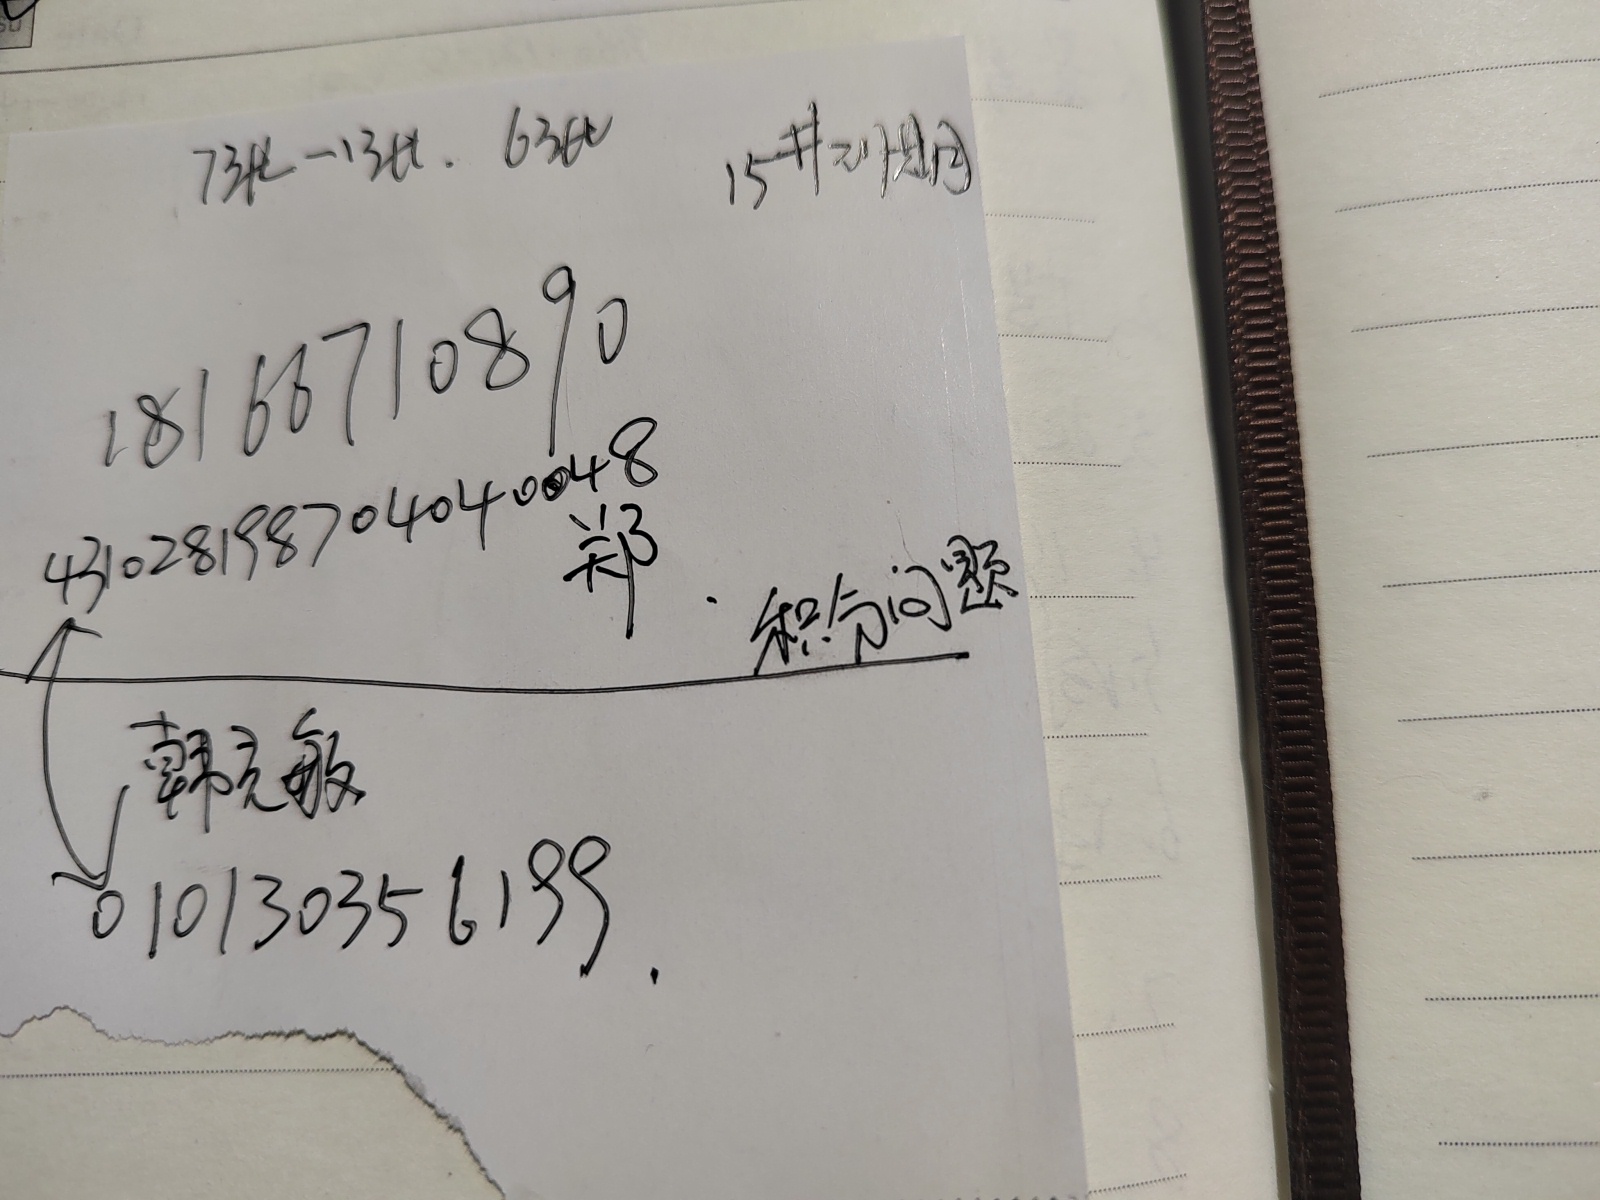 73批一13批. 63批
15井
18166710890
431028198704040048
郑.
积分问题
韩克敏
010130356199.